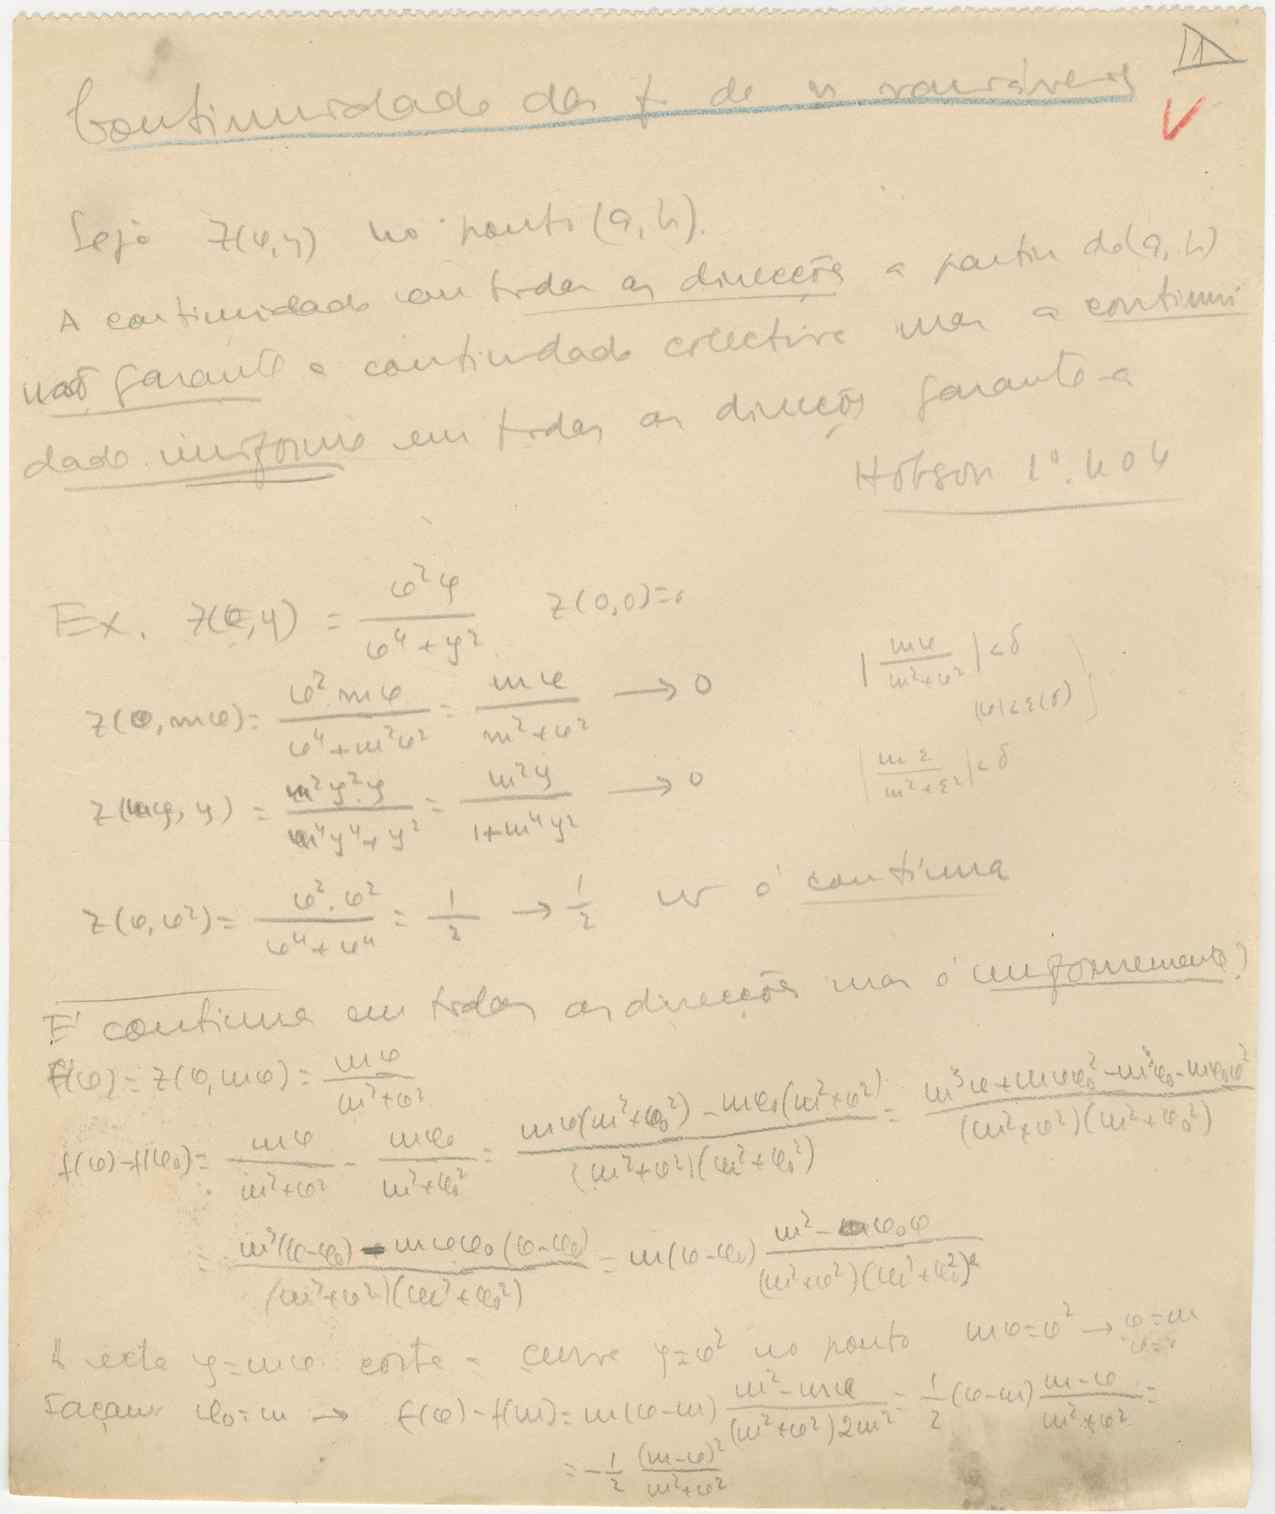 1
Continuidade das f. de n variáveis
Seja z(x,y) no ponto (a,b).
A continuidade em todas as direcções a partir de (a,b)
não garante a continuidade colectiva mas a continui
dade uniforme em todas as direcções garante-a
Hobson 1º. 404
Ex. z(x,y) = \frac{x²y}{x⁴+y²} z(0,0)=0
z(x,mx) = \frac{x².mx}{x⁴+m²x²} = \frac{mx}{m²+x²} → 0
|\frac{mx}{m²+x²}|<δ
|x|<ε(δ)
z(my,y) = \frac{m²y².y}{m⁴y⁴+y²} = \frac{m²y}{1+m⁴y²} → 0
|\frac{mε}{m²+ε²}|<δ
z(x,x²) = \frac{x².x²}{x⁴+x⁴} = \frac{1}{2} → \frac{1}{2} é contínua
É contínua em todas as direcções mas é uniformemente?
f(x) = z(x,mx) = \frac{mx}{m²+x²}
f(x)-f(x₀) = \frac{mx}{m²+x²} - \frac{mx₀}{m²+x₀²} = \frac{mx(m²+x₀²)-mx₀(m²+x²)}{(m²+x²)(m²+x₀²)} = \frac{m³x+mxx₀²-m³x₀-mx₀x²}{(m²+x²)(m²+x₀²)}
= \frac{m³(x-x₀)-mxx₀(x-x₀)}{(m²+x²)(m²+x₀²)} = m(x-x₀) \frac{m²-x₀x}{(m²+x²)(m²+x₀²)}
A recta y=mx corta a curva y=x² no ponto mx=x² → x=m
x=0
Façamos x₀=m → f(x)-f(m) = m(x-m) \frac{m²-mx}{(m²+x²)2m²} = \frac{1}{2}(x-m) \frac{m-x}{m²+x²} =
= -\frac{1}{2} \frac{(m-x)²}{m²+x²}